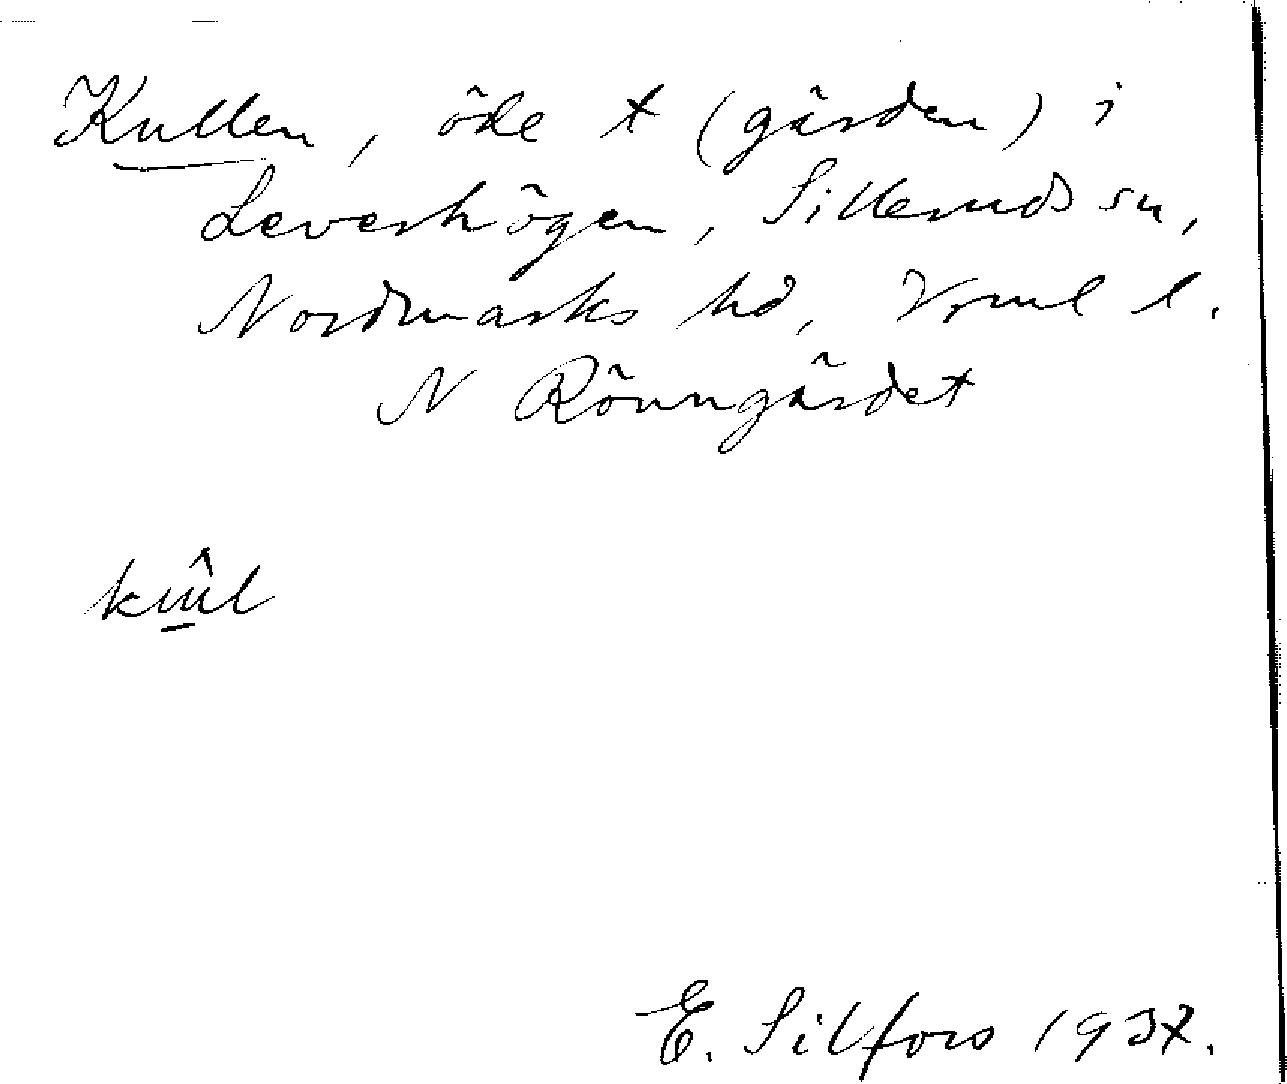 Kullen, öde t (gården) i
Leverhögen, Sillerud sn,
Nordmarks hd, Vrml l.
N Rönngärdet
E. Silfors 1937.